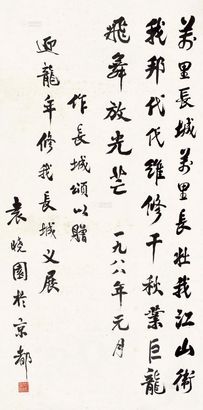 萬里長城萬里長壯我江山衛
我邦代代維修千秋業巨龍
飛舞放光芒
一九八八年元月
作長城頌以贈
迎龍年修我長城义展
袁曉園於京都